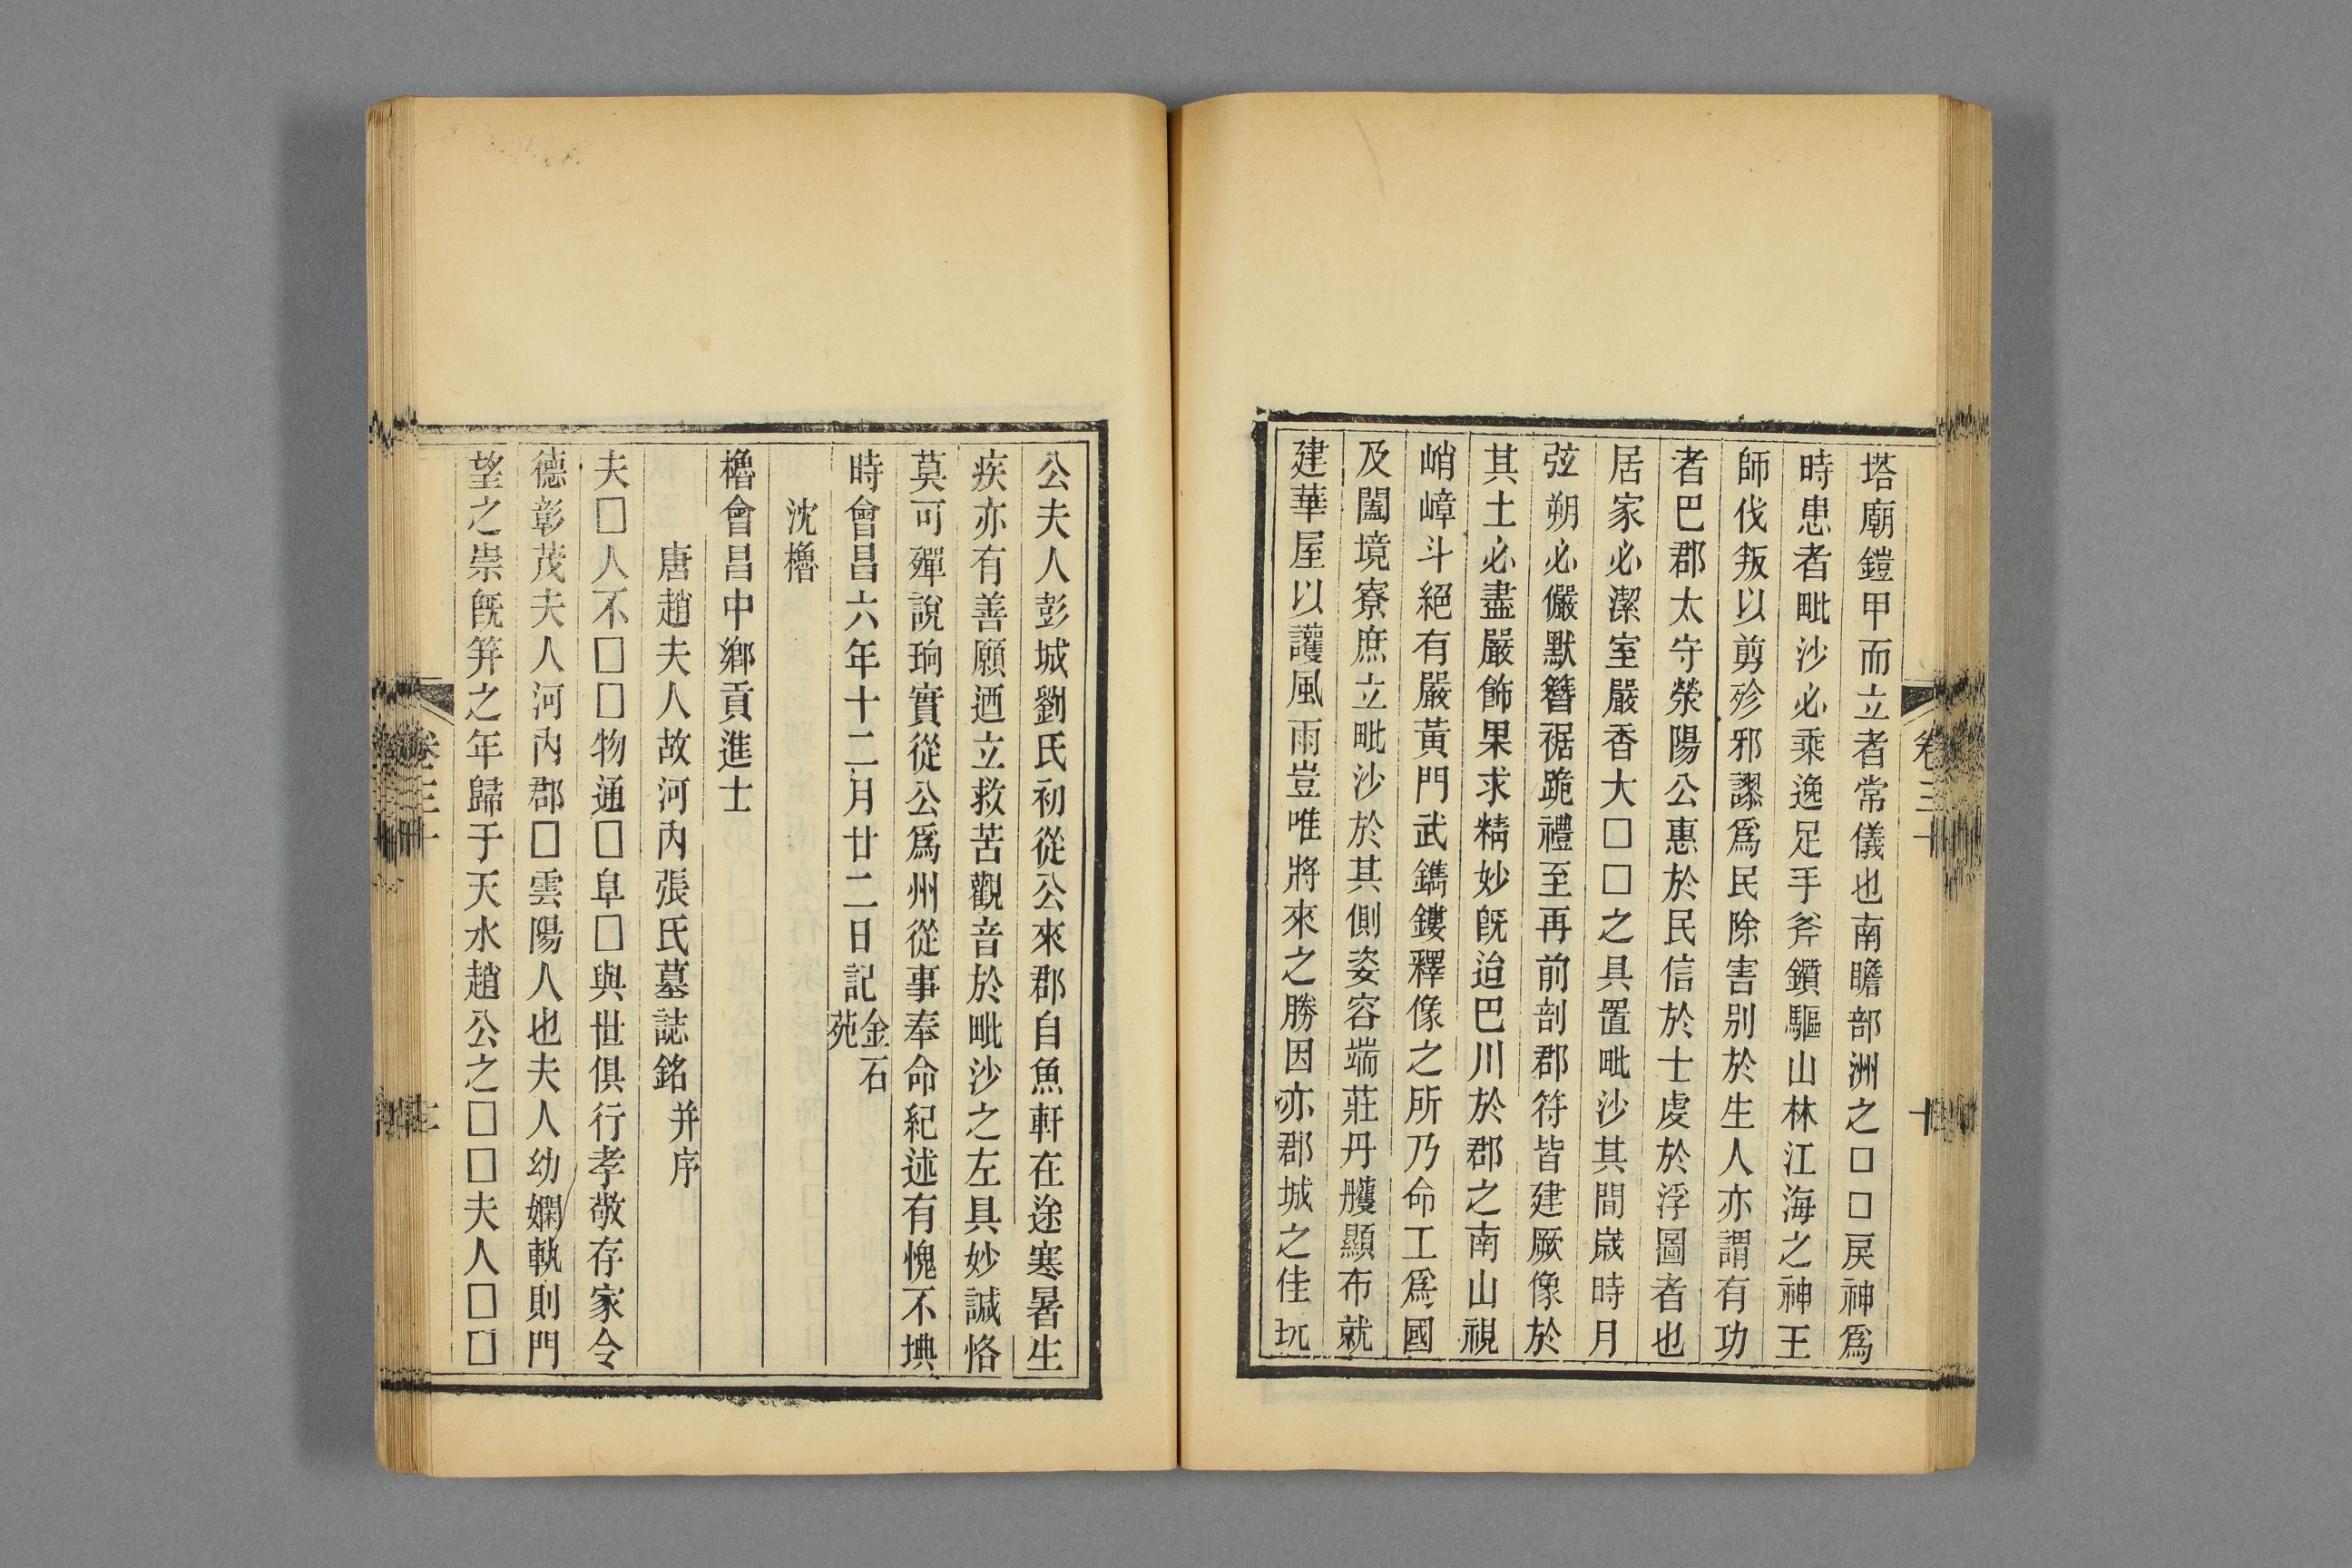 塔廟鎧甲而立者常儀也南瞻部洲之□□戾神爲
時患者毗沙必乘逸足手斧鑽驅山林江海之神王
師伐叛以剪殄邪謬爲民除害別於生人亦謂有功
者巴郡太守滎陽公惠於民信於士虔於浮圖者也
居家必潔室嚴香大□□之具置毗沙其間歲時月
弦朔必儼默簪裾跪禮至再前剖郡符皆建厥像於
其土必盡嚴飾果求精妙旣迨巴川於郡之南山視
峭嶂斗絕有嚴黃門武鐫鏤釋像之所乃命工爲國
及闔境寮庶立毗沙於其側姿容端莊丹雘顯布就
建華屋以護風雨豈唯將來之勝因亦郡城之佳玩
卷三十
十
公夫人彭城劉氏初從公來郡自魚軒在途寒暑生
疾亦有善願迺立救苦觀音於毗沙之左具妙誠恪
莫可殫說珦實從公爲州從事奉命紀述有愧不㙉
時會昌六年十二月廿二日記金石苑
沈櫓
櫓會昌中鄉貢進士
唐趙夫人故河內張氏墓誌銘并序
夫□人不□□物通□阜□與世俱行孝敬存家令
德彰茂夫人河內郡□雲陽人也夫人幼嫻執則門
望之祟旣笄之年歸于天水趙公之□□夫人□□
卷三十